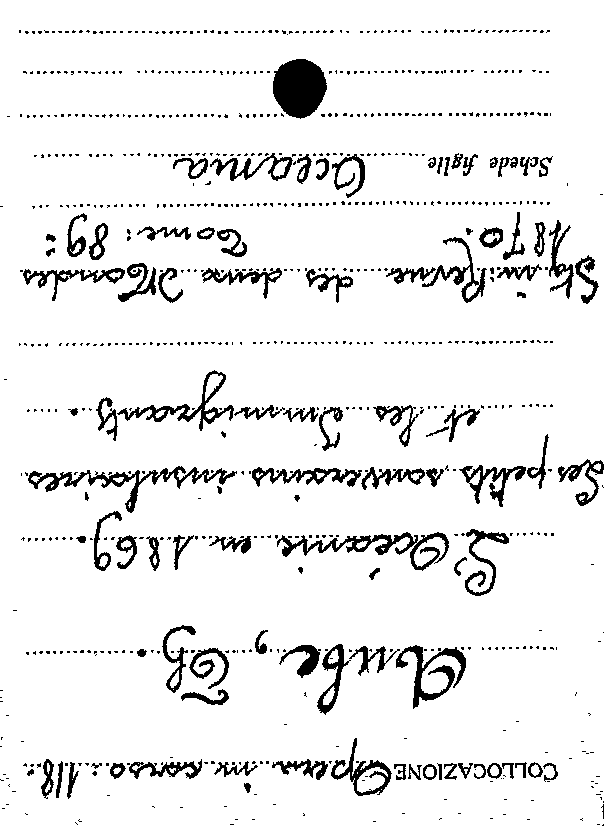 COLLOCAZIONE Opera in corso: 118.
Aube, Th.
L'Océanie en 1869.
Les petits souverains insulaires
et les Immigrants.
Sta in: Revue des deux Mondes
1870. Tome: 89:
Schede figlie Oceania